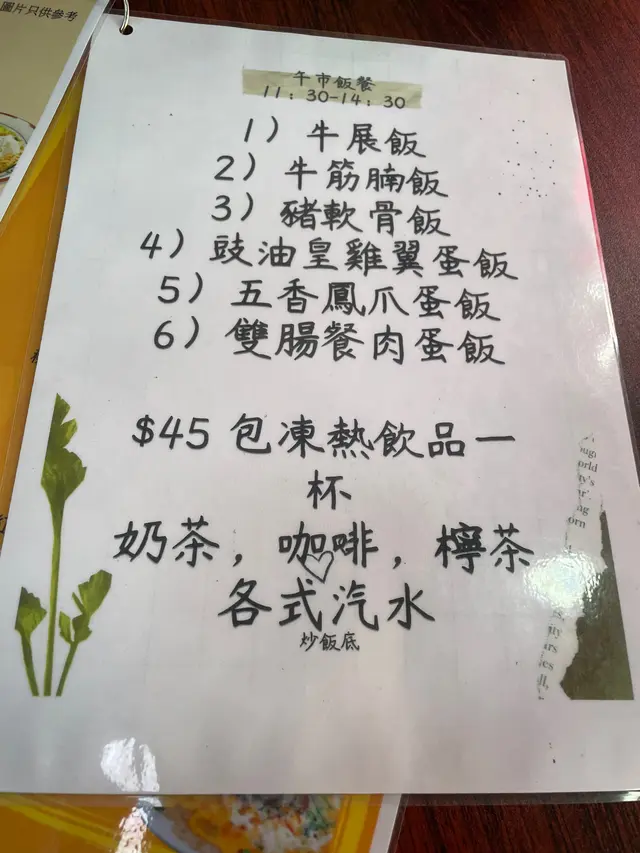 圖片只供參考
午市飯餐
11：30-14：30
1）牛展飯
2）牛筋腩飯
3）豬軟骨飯
4）豉油皇雞翼蛋飯
5）五香鳳爪蛋飯
6）雙腸餐肉蛋飯
$45 包凍熱飲品一
杯
奶茶，咖啡，檸茶
各式汽水
炒飯底
orld
ty's
orn